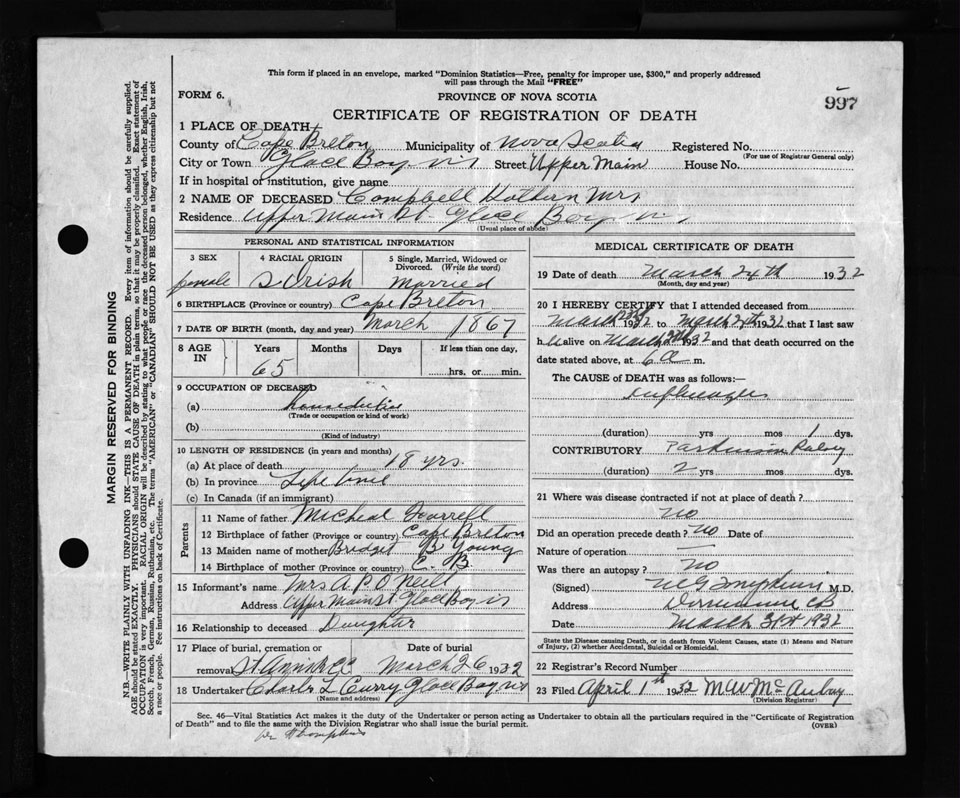 This form if placed in an envelope, marked "Dominion Statistics—Free, penalty for improper use, $300," and properly addressed
will pass through the Mail "FREE"
FORM 6.
PROVINCE OF NOVA SCOTIA
997
CERTIFICATE OF REGISTRATION OF DEATH
1 PLACE OF DEATH
County of Cape Breton Municipality of Nova Scotia Registered No.
(For use of Registrar General only)
City or Town Glace Bay Street Upper Main House No.
If in hospital or institution, give name
2 NAME OF DECEASED Campbell Mrs
Residence Upper Main St Glace Bay
(Usual place of abode)
PERSONAL AND STATISTICAL INFORMATION
3 SEX
female
4 RACIAL ORIGIN
Irish
5 Single, Married, Widowed or
Divorced. (Write the word)
Married
6 BIRTHPLACE (Province or country) Cape Breton
7 DATE OF BIRTH (month, day and year) March 1867
8 AGE IN
Years Months Days If less than one day,
65 hrs. or min.
9 OCCUPATION OF DECEASED
(a)
(Trade or occupation or kind of work)
(b)
(Kind of industry)
10 LENGTH OF RESIDENCE (in years and months)
(a) At place of death 18 yrs.
(b) In province Life time
(c) In Canada (if an immigrant)
Parents
11 Name of father Micheal Farrell
12 Birthplace of father (Province or country) Cape Breton
13 Maiden name of mother Bridget B Young
14 Birthplace of mother (Province or country) C. B.
15 Informant's name Mrs A. P. O'Neill
Address Upper Main St Glace Bay
16 Relationship to deceased Daughter
17 Place of burial, cremation or Date of burial
removal St Anns March 26 1932
18 Undertaker Charles L Curry Glace Bay
(Name and address)
MEDICAL CERTIFICATE OF DEATH
19 Date of death March 24th 1932
(Month, day and year)
20 I HEREBY CERTIFY that I attended deceased from
March 23rd 1932 to March 24th 1932 that I last saw
h alive on March 1932 and that death occurred on the
date stated above, at m.
The CAUSE of DEATH was as follows:
(duration) yrs mos 1 dys.
CONTRIBUTORY Parkinson Palsy
(duration) 2 yrs mos dys.
21 Where was disease contracted if not at place of death?
no
Did an operation precede death? no Date of
Nature of operation —
Was there an autopsy? no
(Signed) M G Tompkins, M.D.
Address Dominion CB
Date March 31st 1932
State the Disease causing Death, or in death from Violent Causes, state (1) Means and Nature
of Injury, (2) whether Accidental, Suicidal or Homicidal.
22 Registrar's Record Number
23 Filed April 1st 1932
(Division Registrar)
Sec. 46—Vital Statistics Act makes it the duty of the Undertaker or person acting as Undertaker to obtain all the particulars required in the "Certificate of Registration
of Death" and to file the same with the Division Registrar who shall issue the burial permit.
(OVER)
MARGIN RESERVED FOR BINDING
N.B.—WRITE PLAINLY WITH UNFADING INK—THIS IS A PERMANENT RECORD. Every item of information should be carefully supplied.
AGE should be stated EXACTLY. PHYSICIANS should STATE CAUSE OF DEATH in plain terms, so that it may be properly classified. Exact statement of
OCCUPATION is very important. RACIAL ORIGIN will be described by stating to what people or race the deceased person belonged, whether English, Irish,
Scotch, French, German, Russian, Ruthenian, etc. The terms "AMERICAN" or "CANADIAN" SHOULD NOT BE USED as they express citizenship but not
a race or people. See instructions on back of Certificate.